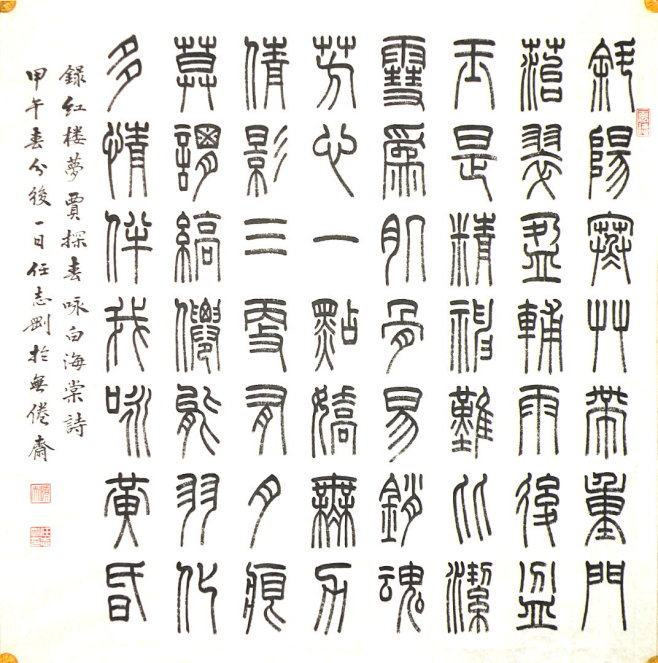 斜陽寒艸帶重門
菭翠盈輔雨後盆
玉是精神難比潔
雪爲肌骨易銷魂
芳心一點嬌無力
倩影三更有月痕
莫謂縞僊能羽化
多情伴我咏黃昏
録紅楼夢賈探春咏白海棠詩
甲午春分後一日任志剛於無倦齋